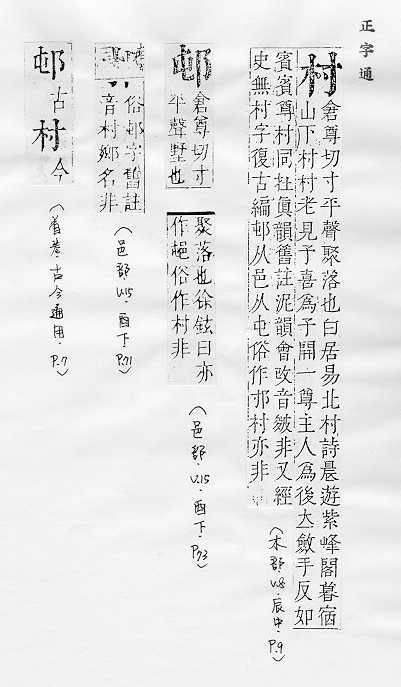 正字通
村 倉尊切寸平聲聚落也白居易北村詩晨遊紫峰閣暮宿
山下村村老見予喜爲予開一尊主人爲後大斂手反如
賓賓尊村同眞韻舊註泥韻會改音皴非又經
史無村字復古編邨从邑从屯俗作村亦非
(木部、v.8、辰中、P.9)
邨 倉尊切寸
平聲墅也
聚落也徐鉉曰亦
作俗作村非
(邑部、v.15、酉下、P.73)
俗邨字舊註
音村鄉名非
(邑部、v.15、酉下、P.71)
邨古村今
(首卷、古今通用、P.7)